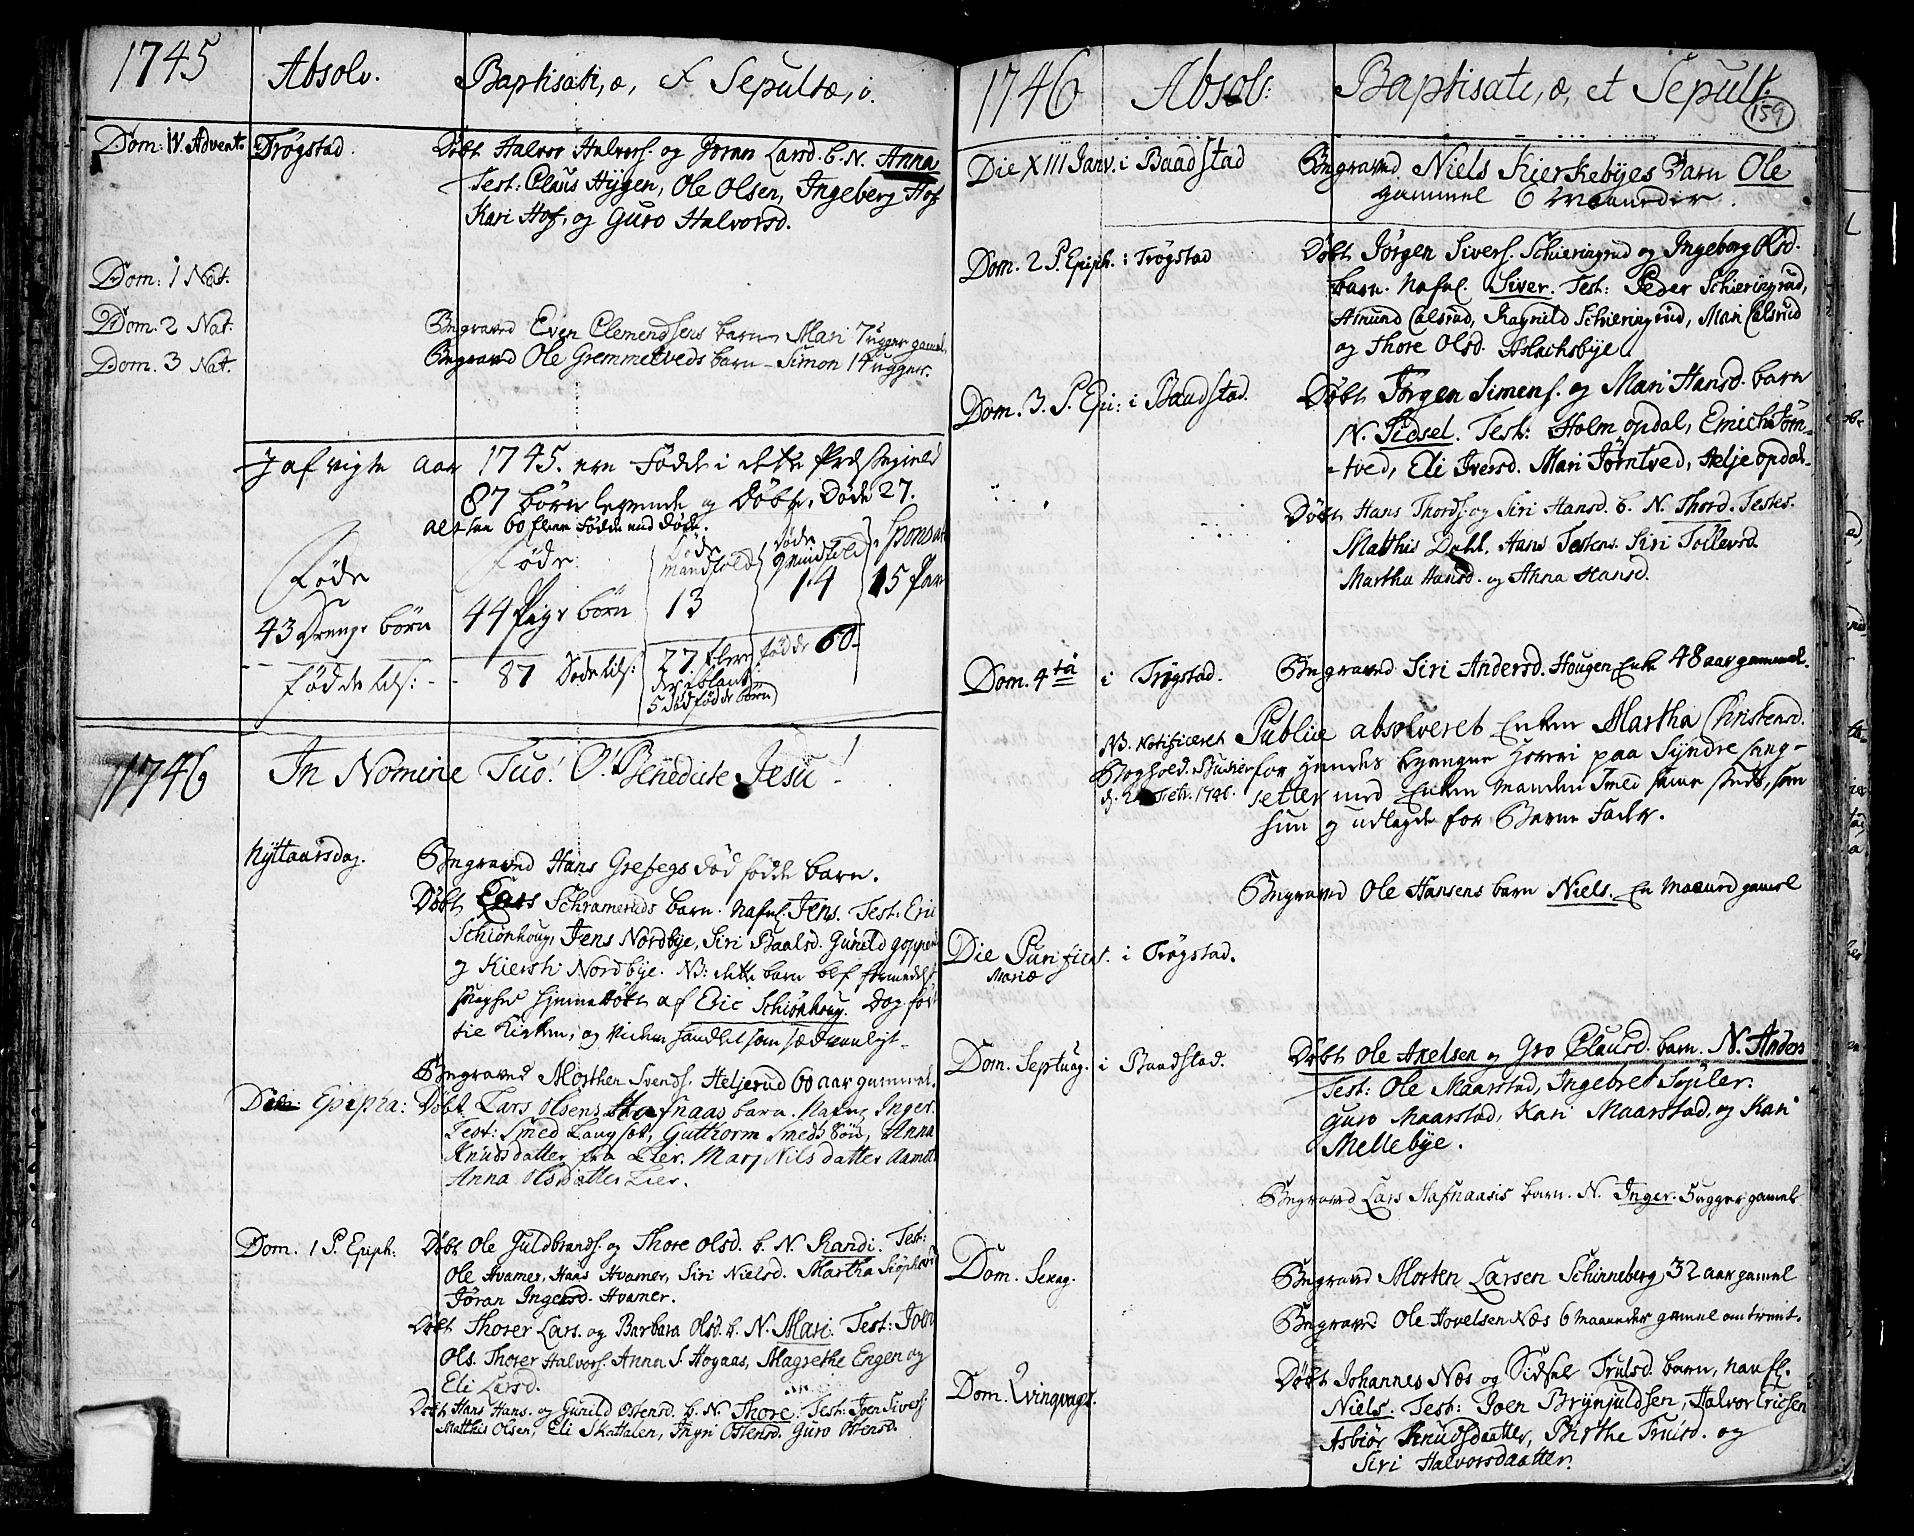 1745
Absolv.
Baptisati, æ, & Sepultæ, i.
Dom: IV. Advent.
Trøgstad.
Døbt Halvor Halvors. og Joran Larsd. b. N. Anna
Test: Claus Hygen, Ole Olsen, Ingeberg Hof
Kari Hof, og Guro Halvorsd.
Dom: 1 Nat.
Dom. 2 Nat.
Begraved Even Clemendsens barn Mari 7 ugger gamel
Dom. 3 Nat.
Begraved Ole Gremmetveds barn Simon 14 ugger.
I afvigte aar 1745. ere Fødde i dette Prdstegield
87 børn levende og døbte, Døde 27.
altsaa 60 flere Fødde end døde.
Føde
43 Drenge børn
Føde
44 Pige børn
Døde
Mandkøld
13
Døde
Qvindkøld
14
Sponsat
15 Par
Fødde tils:
87
Døde tils:
27. flere fødde 60.
der iblant
5 død fødde børn
1746
In Nomine Tuo! O! Benedicte Jesu!
Nyttaarsdag.
Begraved Hans Grefsegs død fødde barn.
Døbt Lars Schrameruds barn. Nafnl. Jens. Test: Eric
Schionhoug, Jens Nordbye, Siri Paalsd. Gunild goppe
og Kiersti Nordbye. NB: dette barn blef formedelst
svaghed hjemmedøbt af Eric Schiønhoug. Dog før
tie Kirken, og videre handlet som sædvanligt.
Begraved Morthen Svends. Heljerud 60 aar gammel.
Epipha:
Døbt Lars Olsens Hafnaas barn. Nafnl Inger.
Test: Smed Langset, Gutthorm Smeds Søn, Anna
Knudsdatter fra Lier. Mari Nilsdatter Aamot
Anna Olsdatter Lier.
Dom. 1 P. Epiph:
Døbt Ole Guldbrands. og Thore Olsd. b. N. Randi. Test:
Ole Hvamer, Hans Hvamer, Siri Nielsd. Martha
Jøran Ingersd. Hvamer.
Døbt Thorer Lars. og Barbara Olsd. b. N. Mari. Test: Joen
Ols. Thorer Halvors. Anna S. Hogaas, Magrethe Engen og
Eli Larsd.
Døbt Hans Hans. og Gunild Ostensd. b. N. Thore. Test: Joen Sivers.
Matthis Olsen, Eli Skattalen, Ingri Ostensd. Guro Ostensd.
1746
Absol:
Baptisati, æ, et Sepult.
159
Die XIII Janv. i Baadstad
Begraved Niels Kierkebyes Barn Ole
gammel 6 Maaneder.
Dom. 2 P. Epiph. i Trøgstad
Døbt Jørgen Sivers. Schieringrud og Ingeborg Olsd.
barn. Nafnl. Siver. Test: Peder Schieringrud,
Amund Calsrud, Ragnild Schieringrud, Mari Calsrud
og Thore Olsd. Aslachsbye.
Dom. 3. P. Epi: i Baadstad.
Døbt Jørgen Simens. og Mari Hansd. barn
N. Sidsel. Test: Holm opdal, Emich Jørn-
tved, Eli Iversd. Mari Jørntved, Helje opdal.
Døbt Hans Thords. og Siri Hansd. b. N. Thord. Testes.
Matthis Dahl, Hans Testens. Siri Tollevsd.
Martha Hansd. og Anna Hansd.
Dom. 4ta i Trøgstad.
Begraved Siri Andersd. Hougen Enke 48 aar gammel.
NB. Notificeret
Publice absolveret Enken Martha Christensd.
for hendes begangne Horeri paa Syndre Lang-
setter med Enke Manden Smed samesteds, som
hun og udlagde for Barne Fader.
Begraved Ole Hansens barn Niels. En Maaned gamel
Die Purificat. i Trøgstad.
Mariæ
Dom. Septuag. i Baadstad.
Døbt Ole Axelsen og Gro Clausd. barn. N. Anders
Test: Ole Maarstad, Ingebret Sojler.
Guro Maarstad, Kari Maarstad, og Kari
Mellebye.
Begraved Lars Hafnaasis barn. N. Inger. 5 ugger gamel
Dom. Sexag.
Begraved Morten Larsen Schinneberg, 32 aar gamel
Begraved Ole Hovelsen Næs 6 Maaneder gamel omtrent.
Dom. Qvinqvags.
Døbt Johannes Næs og Sidsel Trulsd. barn, Navfl.
Niels. Test: Joen Brynjuldsen, Halvor Ericsen
Asbiør Knudsdaatter, Birthe Trulsd. og
Siri Halvorsdaatter.